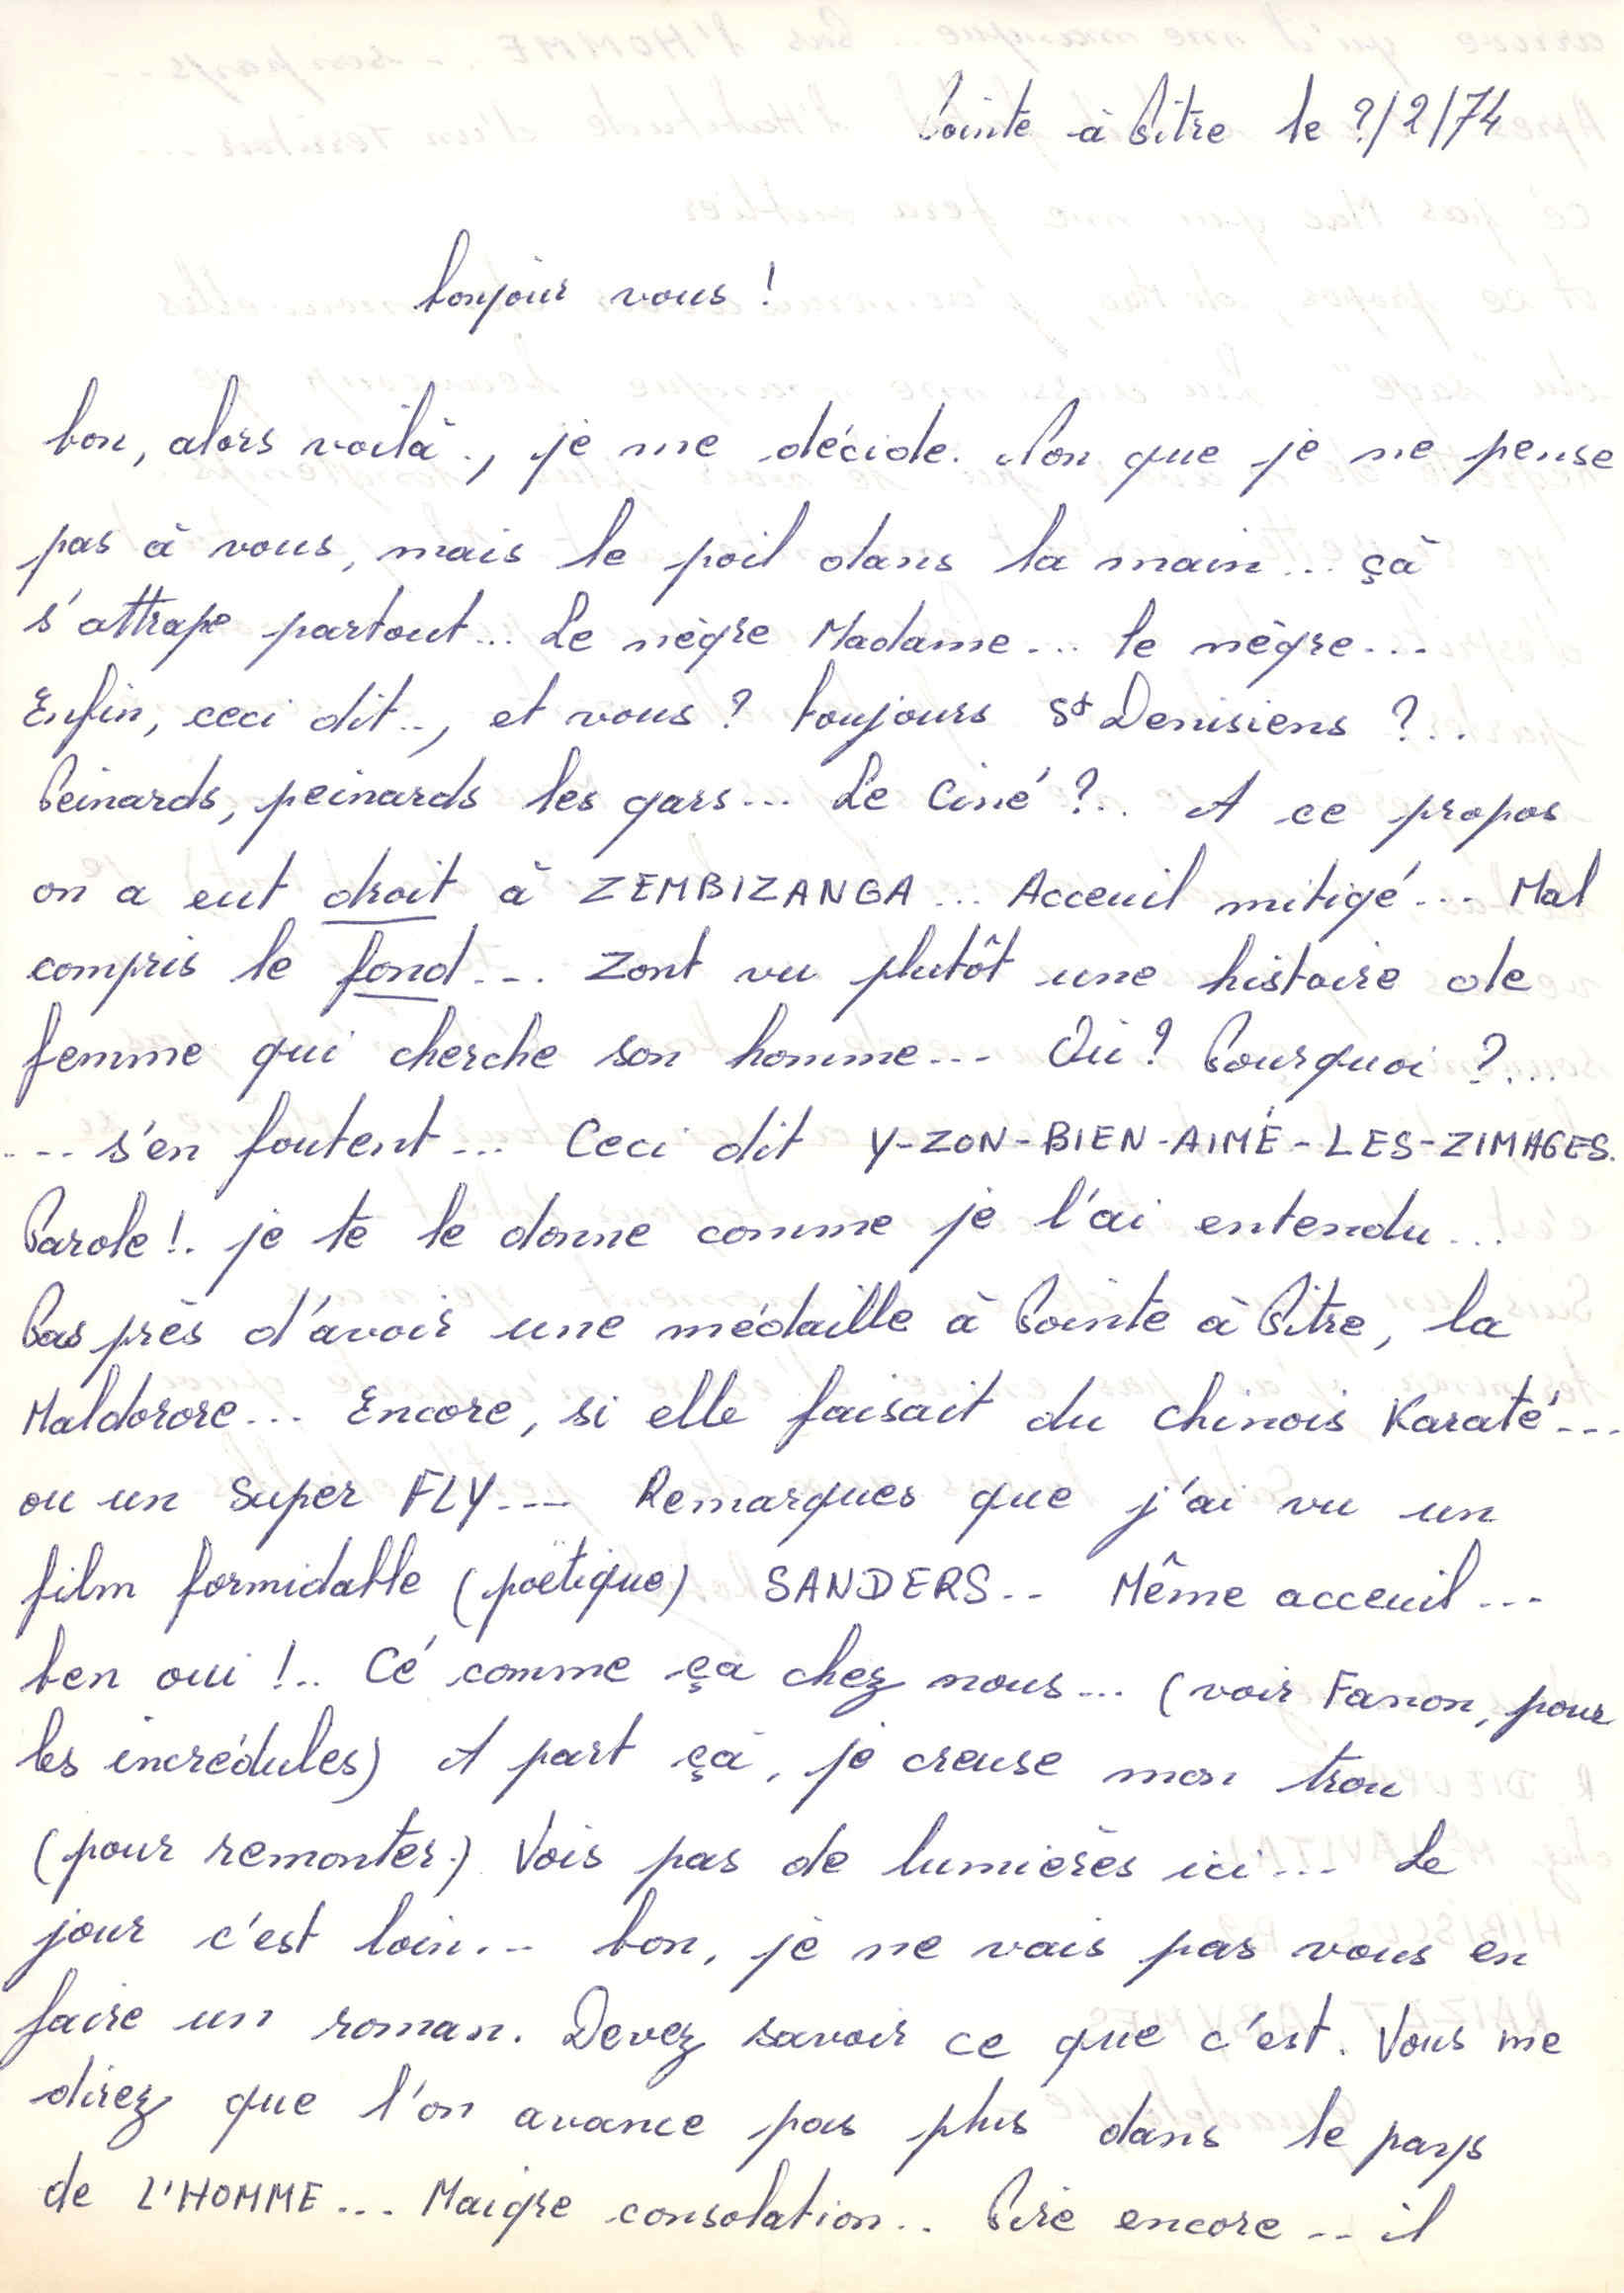 Pointe à Pitre le ?/2/74
bonjour vous !
bon, alors voilà., je me décide. Non que je ne pense
pas à vous, mais le poil dans la main... çà
s'attrape partout... Le nègre Madame... le nègre...
Enfin, ceci dit.., et vous ? toujours St Denisiens ?..
Peinards, peinards les gars... Le Ciné ?.. A ce propos
on a eut droit à ZEMBIZANGA... Acceuil mitigé... Mal
compris le fond... Zont vu plutôt une histoire de
femme qui cherche son homme... Où ? Pourquoi ?...
... s'en foutent... Ceci dit Y-ZON-BIEN-AIMÉ-LES-ZIMAGES.
Parole !. je te le donne comme je l'ai entendu...
Pas près d'avoir une médaille à Pointe à Pitre, la
Maldorore... Encore, si elle faisait du chinois Karaté...
ou un Super FLY... Remarques que j'ai vu un
film formidable (poëtique) SANDERS.. Même acceuil...
ben oui !.. Cé comme ça chez nous... (voir Fanon, pour
les incrédules) A part çà, je creuse mon trou
(pour remonter.) Vois pas de lumières ici... Le
jour c'est loin... bon, je ne vais pas vous en
faire un roman. Devez savoir ce que c'est. Vous me
direz que l'on avance pas plus dans le pays
de L'HOMME... Maigre consolation.. Pire encore.. il